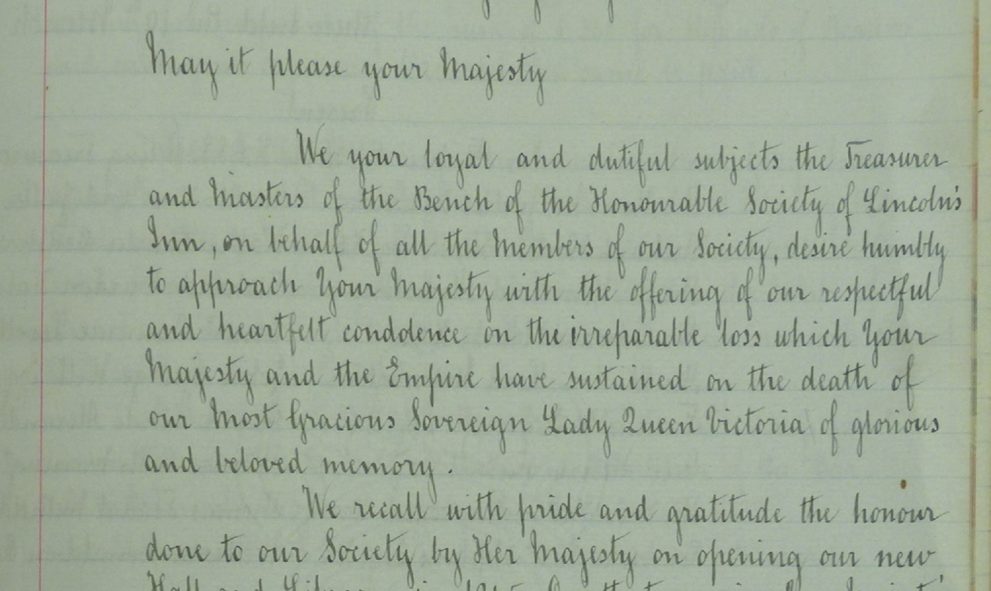 May it please your Majesty
We your loyal and dutiful subjects the Treasurer
and Masters of the Bench of the Honourable Society of Lincoln's
Inn, on behalf of all the Members of our Society, desire humbly
to approach Your Majesty with the offering of our respectful
and heartfelt condolence on the irreparable loss which Your
Majesty and the Empire have sustained on the death of
our Most Gracious Sovereign Lady Queen Victoria of glorious
and beloved memory.
We recall with pride and gratitude the honour
done to our Society by Her Majesty on opening our new
Hall and Library in 1845